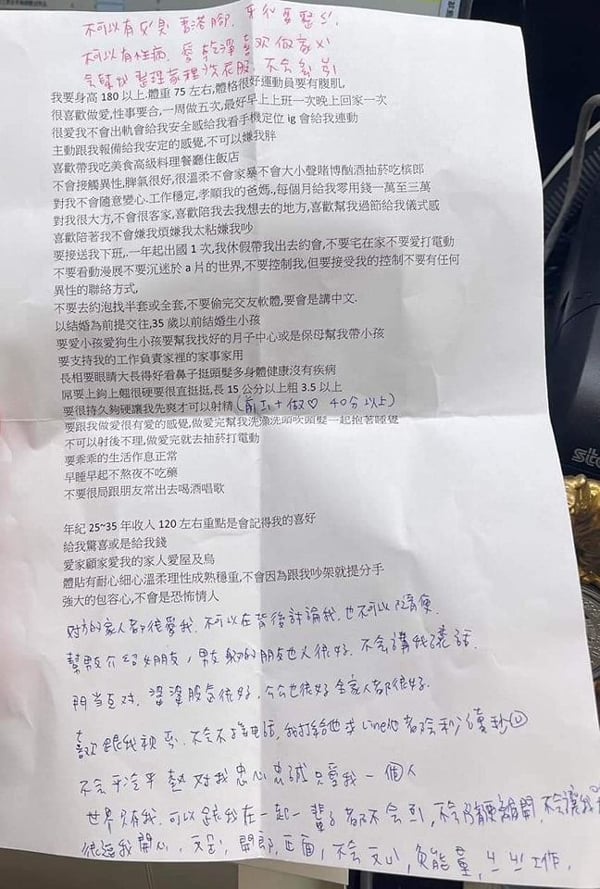 不可以有纹身,香港腳,牙齒要整齊.
不可以有性病.愛乾淨喜欢做家事
会幫忙整理家裡洗衣服.不会
我要身高 180 以上.體重 75 左右,體格很好運動員要有腹肌,
很喜歡做愛,性事要合,一周做五次,最好早上上班一次晚上回家一次
很愛我不會出軌會給我安全感給我看手機定位 ig 會給我連動
主動跟我報備給我安定的感覺,不可以嫌我胖
喜歡帶我吃美食高級料理餐廳住飯店
不會接觸異性,脾氣很好,很溫柔不會家暴不會大小聲賭博酗酒抽菸吃檳榔
對我不會隨意變心.工作穩定,孝順我的爸媽.,每個月給我零用錢一萬至三萬
對我很大方,不會很客家,喜歡陪我去我想去的地方,喜歡幫我過節給我儀式感
喜歡陪著我不會嫌我煩嫌我太粘嫌我吵
要接送我下班,.一年起出國 1 次,我休假帶我出去約會,不要宅在家不要愛打電動
不要看動漫展不要沉迷於 a 片的世界,不要控制我,但要接受我的控制不要有任何
異性的聯絡方式,
不要去約泡找半套或全套,不要偷完交友軟體,要會是講中文.
以結婚為前提交往,35 歲以前結婚生小孩
要愛小孩愛狗生小孩要幫我找好的月子中心或是保母幫我帶小孩
要支持我的工作負責家裡的家事家用
長相要眼睛大長得好看鼻子挺頭髮多身體健康沒有疾病
屌要上鉤上翹很硬要很直挺挺,長 15 公分以上粗 3.5 以上
要很持久夠硬讓我先爽才可以射精(前戏+做♡ 40分以上)
要跟我做愛很有愛的感覺,做愛完幫我洗澡洗頭吹頭髮一起抱著睡覺
不可以射後不理,做愛完就去抽菸打電動
要乖乖的生活作息正常
早睡早起不熬夜不吃藥
不要很局跟朋友常出去喝酒唱歌
年紀 25~35 年收入 120 左右重點是會記得我的喜好
給我驚喜或是給我錢
愛家顧家愛我的家人愛屋及烏
體貼有耐心細心溫柔理性成熟穩重,不會因為跟我吵架就提分手
強大的包容心,不會是恐怖情人
对方的家人都很愛我.不可以在背後討論我.也不可以隨便
幫男友介紹女朋友,男友的朋友也人很好.不会講我壞話
門当互对.婆婆脾氣很好.公公也很好全家人都很好.
喜欢跟我視訊.不会不接電話,我打給他或line他都会秒讀秒回
不会乎冷乎熱 对我忠心忠誠只愛我一個人
世界只有我.可以跟我在一起一輩子都不会,不会隨便離開,不会讓我
很逗我開心,開朗,正面,不会,負能量,工作.